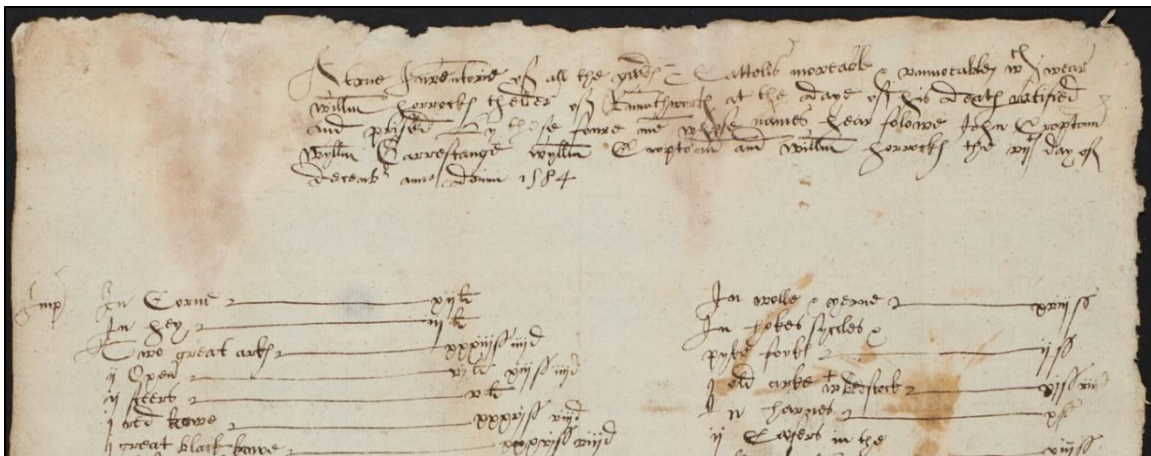 A true Inventorie of all the goods & Cattells moveable & unmoveable wch wear
Willm Horrocks thelder of at the daye of his death ratified
and prised by these foure me whose names hear folowe John Cropton
Wyllm Garrestange Wyllm Cropton and Willm Horrocks the vij day of
decembr anno domini 1584
Imp
In Corne xij li
In hey iij li
Two great arks xxxiijss iiijd
ij Oxen vj li xiijss iiijd
ij steers v li
j red kowe xxxvjss viijd
ij great black kowe viijd
In wolle & yerne xxiijss
In hokes syccles &
pyke forks ijss
j old arke & bedstock vjss viijd
In harnes xss
ij Cofers in the xiijss